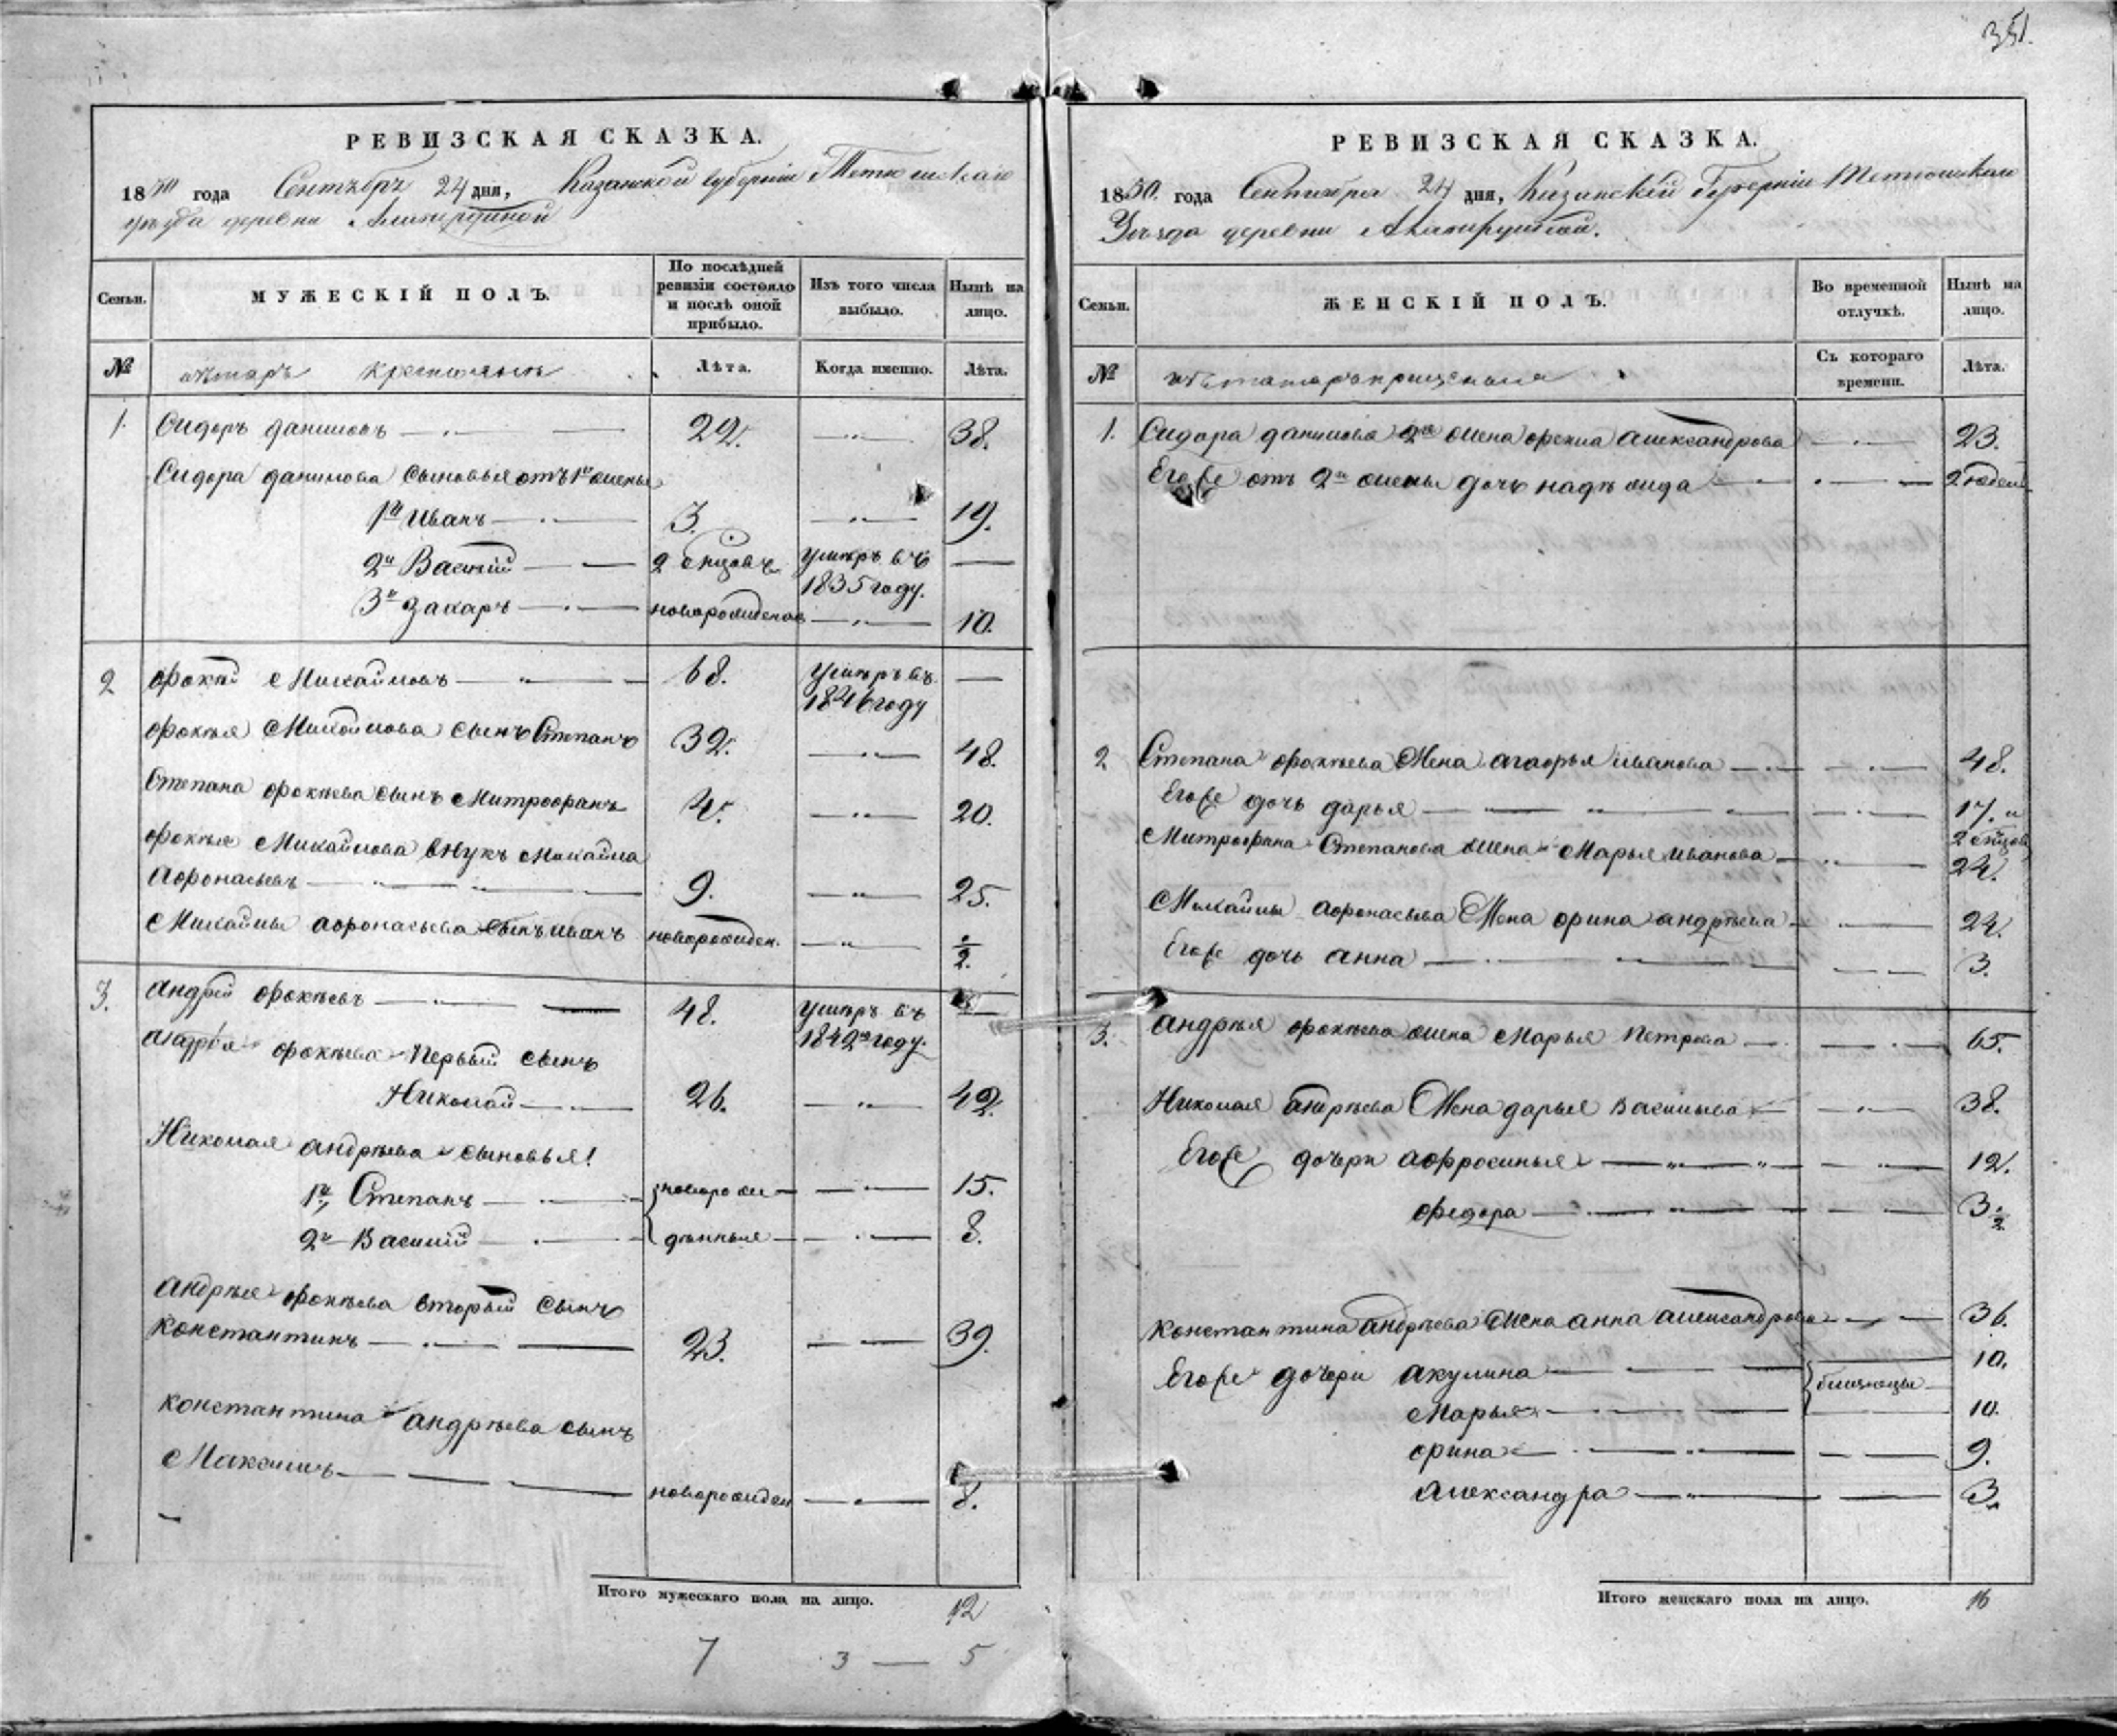 351.
РЕВИЗСКАЯ СКАЗКА.
1850 года Сентябръ 24 дня, Казанской губерніи Тетюшскаго
уѣзда деревни
Семьи. МУЖЕСКІЙ ПОЛЪ. По послѣдней ревизіи состояло и послѣ оной прибыло. Изъ того числа выбыло. Нынѣ на лицо.
№ Лѣта. Когда именно. Лѣта.
1. Сидоръ даниловъ 22. 38.
Сидора данилова сыновья отъ 1й жены
1й Иванъ 3. 19.
2й Василій 2 умѣръ въ 1835 году.
3й Захаръ новорожденъ 10.
2 Фокѣй Михайловъ 68. Умѣръ въ 1846 году
Фокѣя Михайлова сынъ Степанъ 32. 48.
Степана Фокѣева сынъ Митрофанъ 4. 20.
Фокѣя Михайлова внукъ Михайла
Афонасьевъ 9. 25.
Михайлы Афонасьева сынъ иванъ новорожден. ½.
3. Андрей Фокѣевъ 48. умѣръ въ 1842м году.
Андрѣя Фокѣева Первый сынъ
Николай 26. 42.
Николая андрѣева сыновья!
1й, Степанъ новорож 15.
2й Василій дѣнные 8.
Андрѣя Фокѣева вторый сынъ
константинъ 23. 39.
константина андрѣева сынъ
Максимъ новорожден 8.
Итого мужескаго пола на лицо. 12
7 3 — 5
РЕВИЗСКАЯ СКАЗКА.
1850. года Сентября 24 дня, Казанскій Губерніи Тетюшскаи
Уѣзда деревни
Семьи. ЖЕНСКІЙ ПОЛЪ. Во временной отлучкѣ. Нынѣ на лицо.
№ Съ котораго времени. Лѣта.
1. Сидора данилова 2я жена александрова 23.
Егоже отъ 2й жены дочь надѣжида
2 Степана Фокѣева Жена агафья иванова 48.
Егоже дочь дарья 17. и
Митрофана Степанова жена Марья иванова 24.
Михайлы Афонасьева Жена орина андрѣева 24.
Егоже дочь анна 3.
3. андрѣя Фокѣева жена Марья Петрова 65.
Николая андрѣева Жена дарья Васильева 38.
Егоже дочери афросинья 12.
Федора 3½
константина андрѣева жена анна александрова 36.
Егоже дочери акулина 10.
близнецы
Марья 10.
орина 9.
александра 3.
Итого женскаго пола на лицо. 16